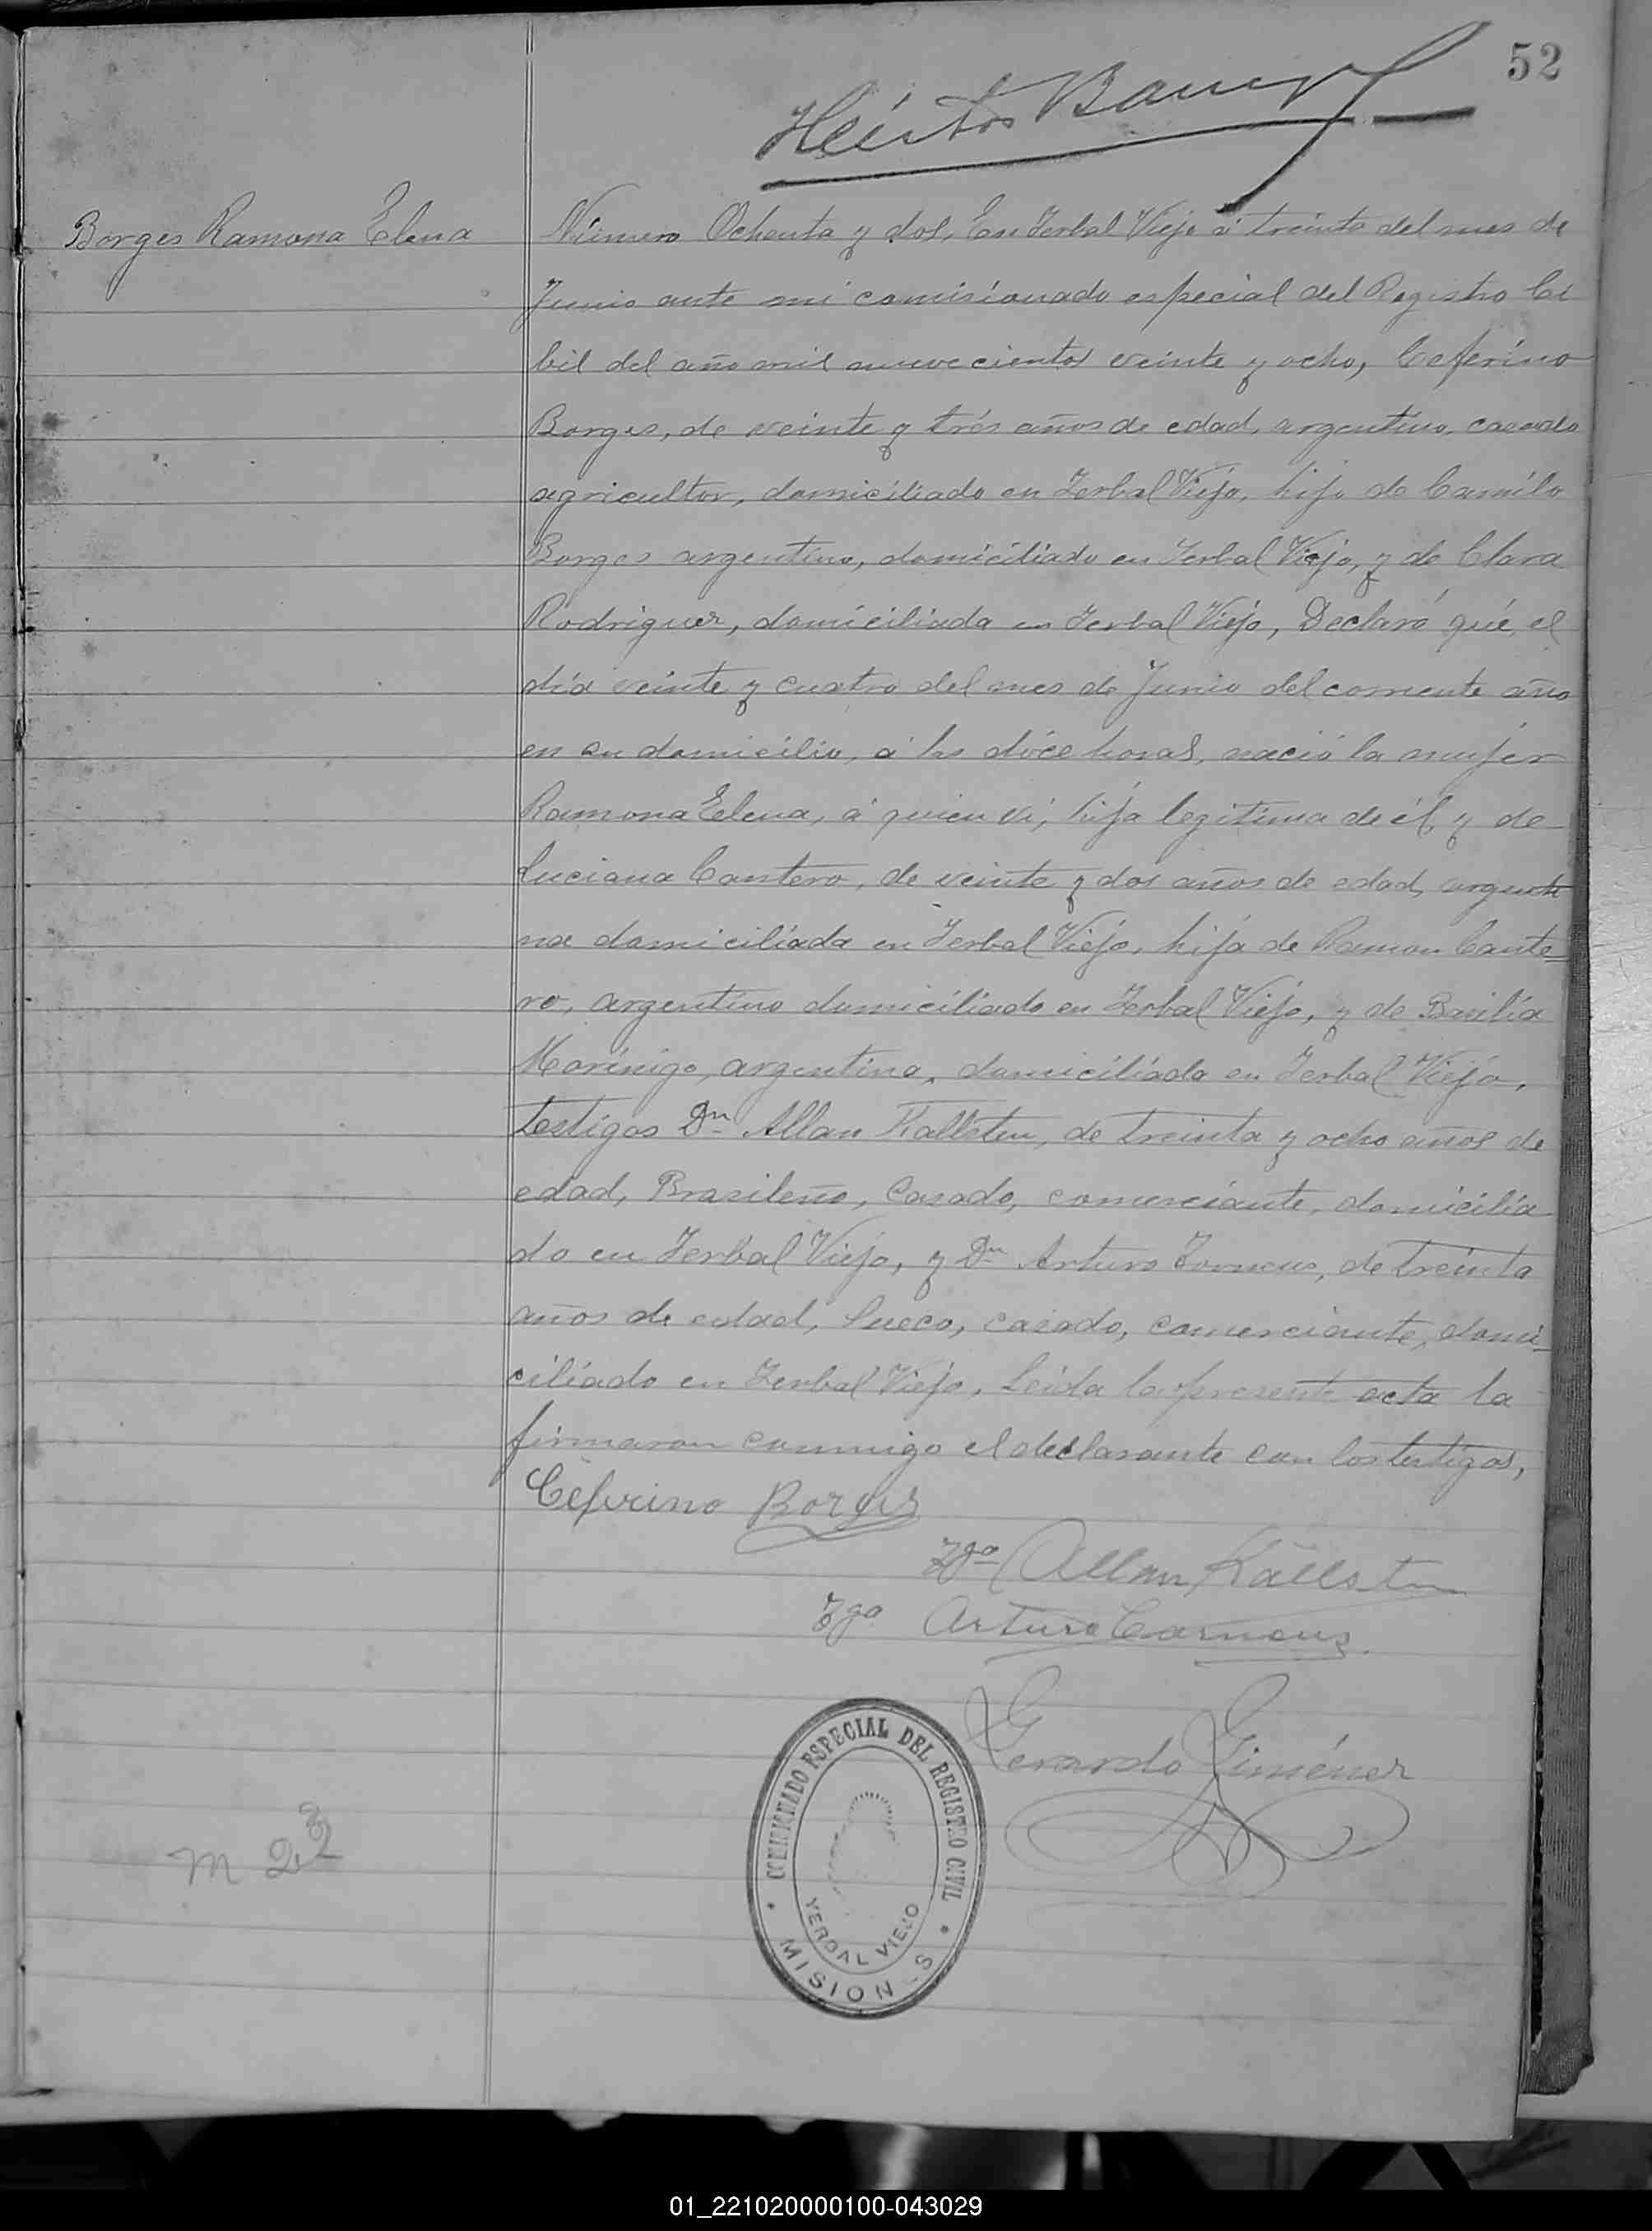 52
Héctor
Borges Ramona Elena
Número Ochenta y dos, En Yerbal Viejo á treinta del mes de
Junio ante mi comisionado especial del Registro Ci
bil del año mil nuevecientos veinte y ocho, Ceferino
Borges, de veinte y trés años de edad, argentino, casado
agricultor, domiciliado en Yerbal Viejo, hijo de Camilo
Borges argentino, domiciliado en Yerbal Viejo, y de Clara
Rodriguez, domiciliada en Yerbal Viejo, Declaró qué, el
día veinte y cuatro del mes de Junio del corriente año
en su domicilio, á las dóce horas, nació la mujer
Ramona Elena, á quien ví, hija legitima de él, y de
Luciana Cantero, de veinte y dos años de edad, argenti
na domiciliada en Yerbal Viejo, hija de Ramon Cante-
ro, argentino domiciliado en Yerbal Viejo, y de Basilia
Morínigo, argentina, domiciliada en Yerbal Viejo,
testigos Dn Allan Kallsten, de treinta y ocho años de
edad, Brasileño, Casado, comerciante, domicilia
do en Yerbal Viejo, y Dn Arturo de treinta
años de edad, Sueco, casado, comerciante, domi-
ciliado en Yerbal Viejo, Leida la presente acta la
firmaron conmigo el declarante con los testigos,
Ceferino Borges
Tgo Allan Källsten
Tgo Arturo
Gerardo Giménez
COMISIONADO ESPECIAL DEL REGISTRO CIVIL
YERBAL VIEJO
* MISIONES *
m 23
01_221020000100-043029